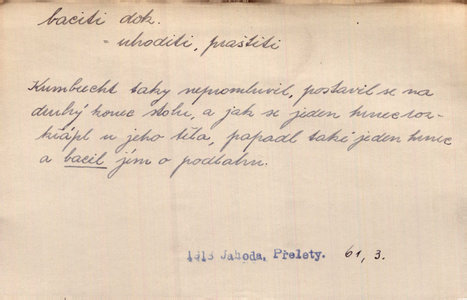 baciti dok.
- uhoditi, praštiti
Kumbrecht taky nepromluvil, postavil se na
druhý konec stolu, a jak se jeden hrnec roz-
křápl u jeho těla, popadl také jeden hrnec
a bacil jím o podlahu.
1913 Jahoda, Přelety. 61, 3.